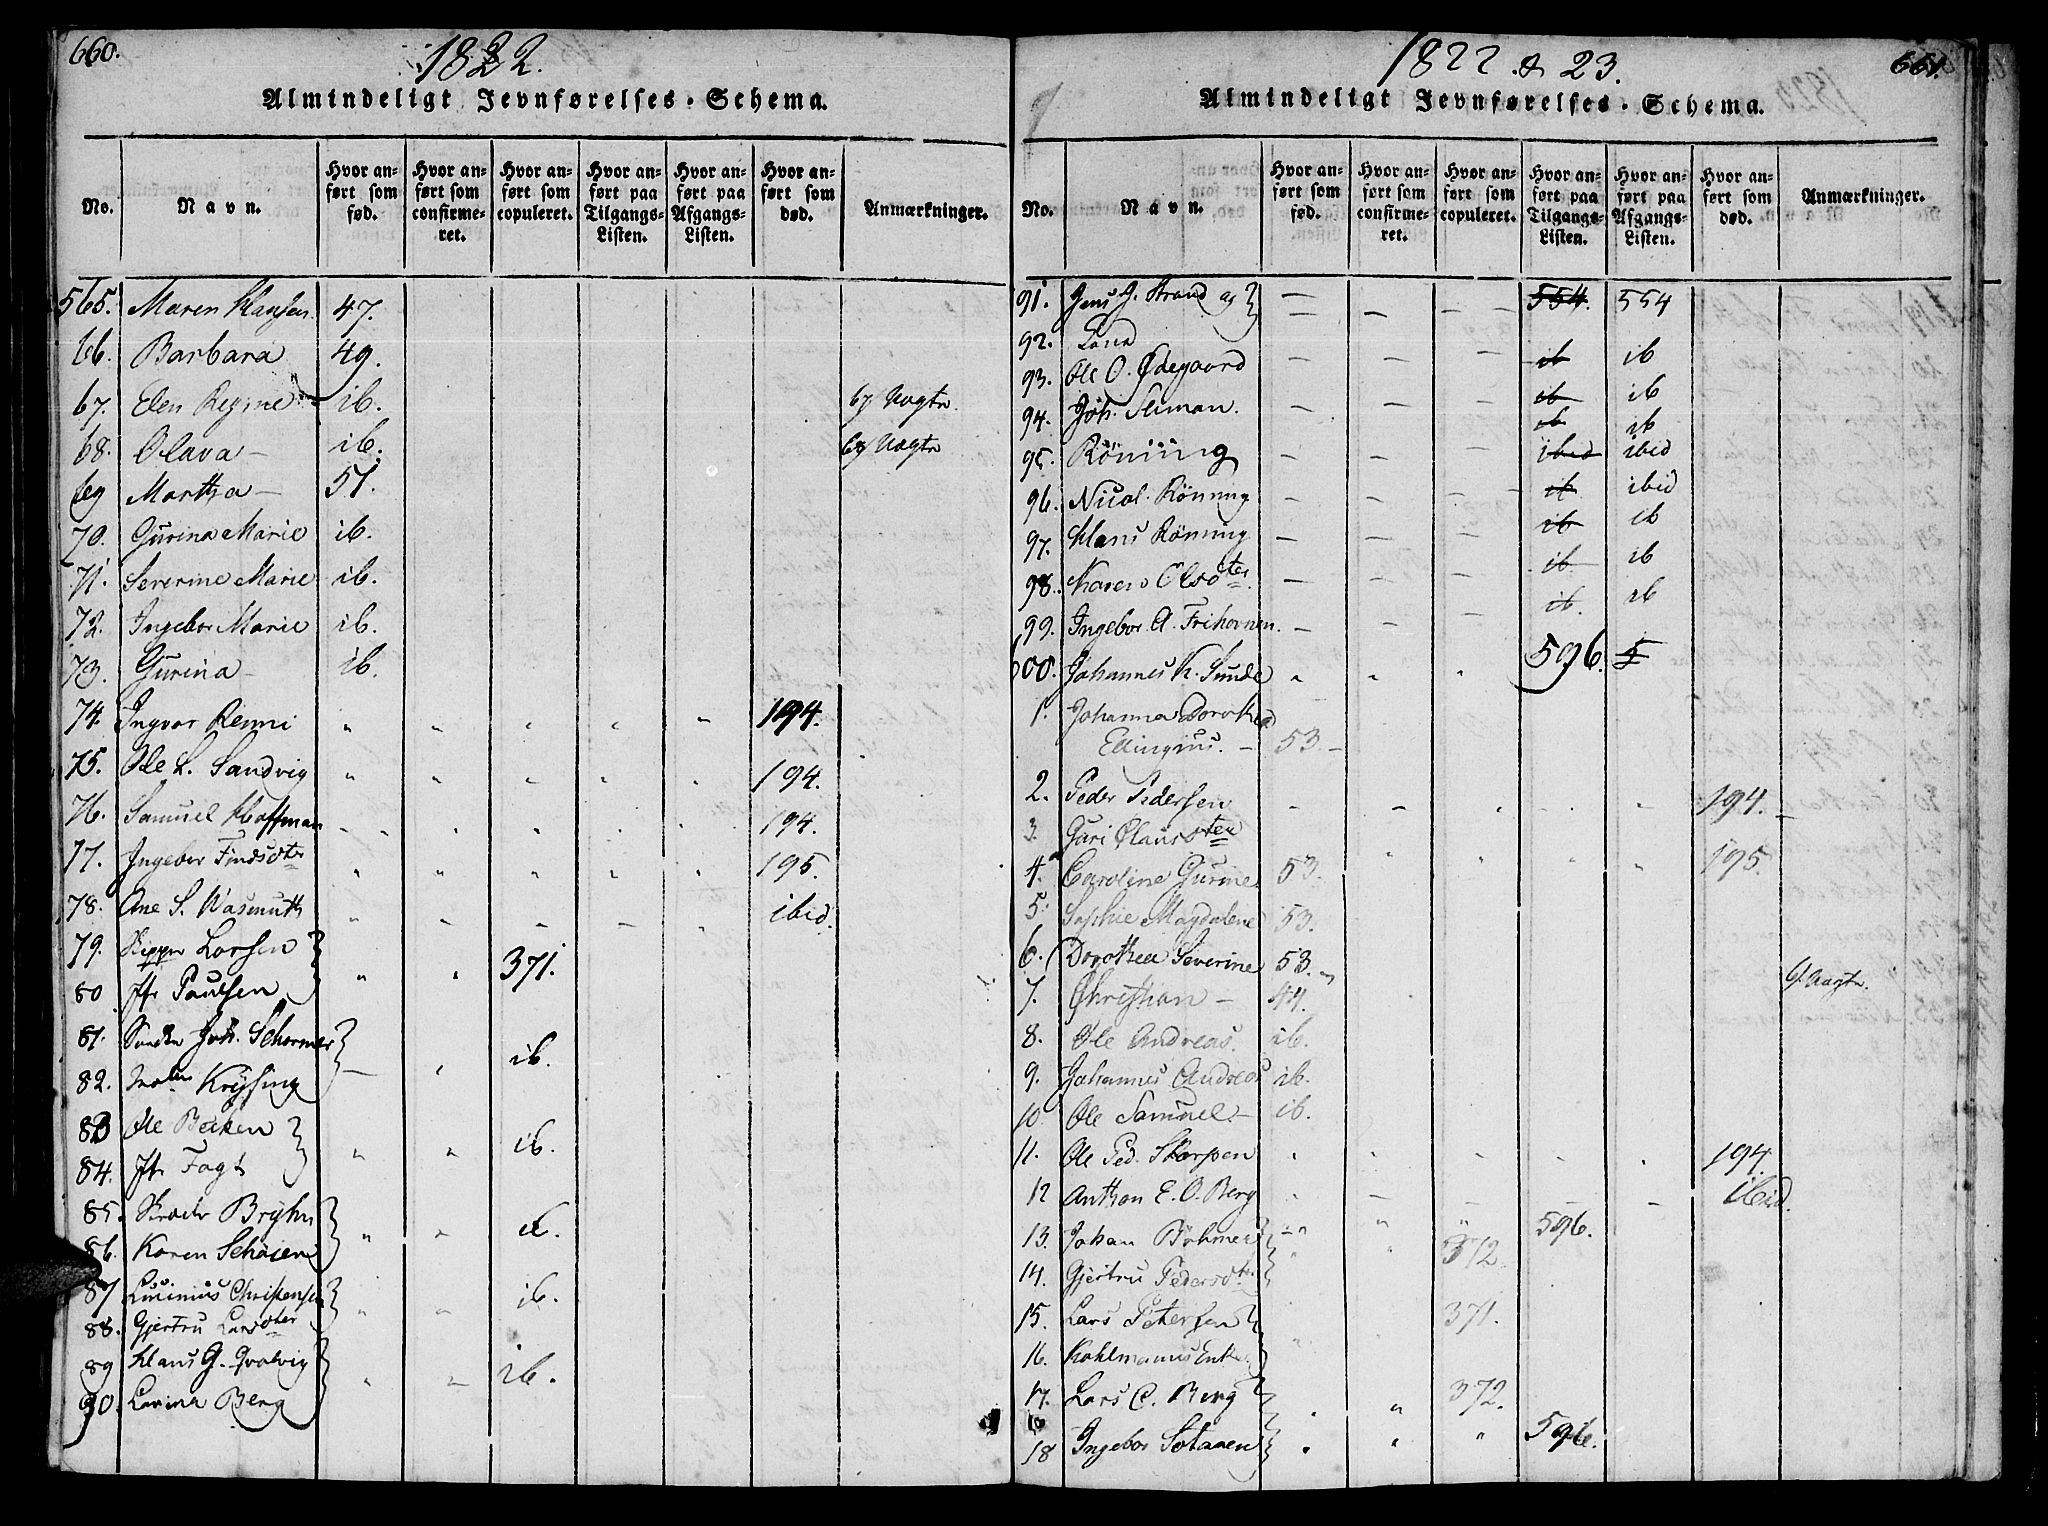 660.
1822.
Almindeligt Jevnførelses-Schema.
No. Navn. Hvor anført som fød. Hvor anført som confirmeret. Hvor anført som copuleret. Hvor anført paa Tilgangs-Listen. Hvor anført paa Afgangs-Listen. Hvor anført som død. Anmærkninger.
565. Maren 47.
66. Barbara 49.
67. Elen Regine ib. 67 Vagtr
68. Olava – ib. 68 Vagtr
69 Martha – 51.
70. Gurina Marie ib.
71. Severine Marie ib.
72. Ingebor Marie ib.
73. Gurina – ib.
74. Ingvor Remmi " " " " " 194.
75. Ole L. Sandvig " " " " " 194.
76. Samuel Hoffman 194.
77. Ingebor Findsdter " " " " " 195.
78. Ane S. Wasmuth ibid.
79. Skipper Larsen
80 Jfr Paulsen " " 371.
81. Joh. Schormer
82. Krysing – " ib.
83 Ole Bakken
84. Jfr Fogt " " ib.
85. Bryhn
86. Karen " " ib.
87 Christensen
88. Gjertru Larsdter " " ib.
89 Klaus G. Qvalvig
90. Lovina Berg " – ib.
1822 & 23.
661.
Almindeligt Jevnførelses-Schema.
No. Navn. Hvor anført som fød. Hvor anført som confirmeret. Hvor anført som copuleret. Hvor anført paa Tilgangs-Listen. Hvor anført paa Afgangs-Listen. Hvor anført som død. Anmærkninger.
91. Jens G. Strand og – – – 554. 554
92. Lona
93. Ole O. Ødegaard – – – ib ib
94. Joh. Sliman. – – – ib ib
95. Rönning – – – ibid ibid
96. Nicol. Rönning – – – ib ibid
97. Klaus Rönning – – – ib ib
98. Karen Olsdter – – – ib ib
99. Ingebor A. Frihovnen. – – – ib. ib
600. Johannes K. Sunde " " " 596. 5
1. Johanna Dorothea
Ellingius. – 53. –
2. Peder Pedersen 194.
3. Guri Olausdter 195.
4. Caroline Gurine 53.
5. Sophie Magdalene 53.
6. Dorothea Severine 53.
7. Christian – 44. 9. Vagtr.
8. Ole Andreas. ib.
9. Johannes Andreas ib.
10. Ole Samuel – ib.
11. Ole Ped. Skarpen 194.
12 Anthon E. O. Berg ibid.
13. Johan Böhmer 596.
14. Gjertru Pedersdtr. 372
15. Lars Petersen 371.
16. Kohlmanns Enke.
17. Lars C. Berg 372.
18 Ingebor Sotanen " " " 596.